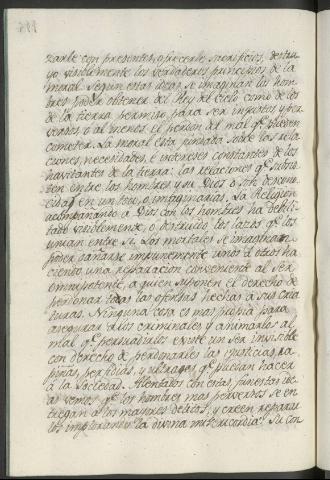 zarle con presentes, ofrecerle sacrificios, destru-
yó visiblemente los verdaderos principios de la
moral. Segun estas ideas se imaginan los hom-
bres poder obtener del Rey del Cielo como de los
de la tierra permiso para ser injustos y per-
versos, o al menos el perdon del mal qe pueden
cometer. La moral esta fundada sobre las rela-
ciones, necesidades, é intereses constantes de los
havitantes de la tierra; las relaciones qe subsis-
ten entre los hombres y su Dios o son descono-
cidas en un todo, o imaginarias. La Religion
acompañando a Dios con los hombres ha debili-
tado visiblemente, o destruido los lazos qe los
unian entre si. Los mortales se imaginan
poder dañarse impunemente unos á otros ha-
ciendo una reparacion conveniente al Ser
omnipotente, a quien suponen el derecho de
perdonar todas las ofensas hechas á sus cria-
turas. Ninguna cosa es mas propia para
asegurar á los criminales y animarlos al
mal qe persuadirles existe un ser invisible
con derecho de perdonarles las injusticias, ra-
piñas, perfidias, y ultrages qe puedan hacer
á la Sociedad. Alentados con estas funestas ide-
as vemos qe los hombres mas perversos se en-
tregan a los mayores delitos, y creen reparar-
los implorando la divina misericordia: su con